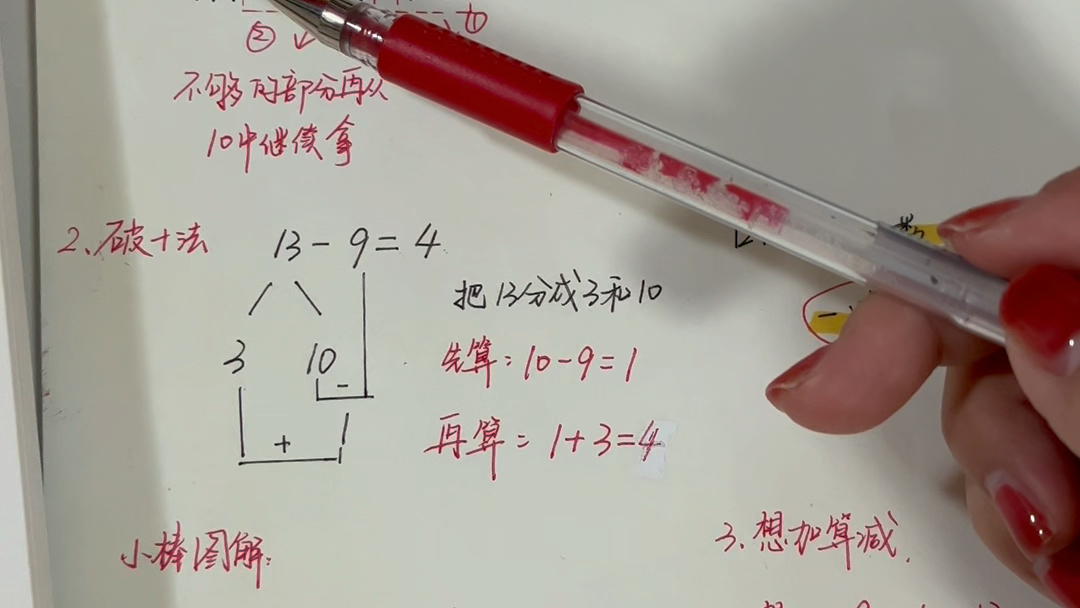 ② ①
不够的部分再从
10中继续拿
2、破十法 13-9=4
把13分成3和10
3 10
-
先算：10-9=1
1
+
再算：1+3=4
小棒图解：
3、想加算减.